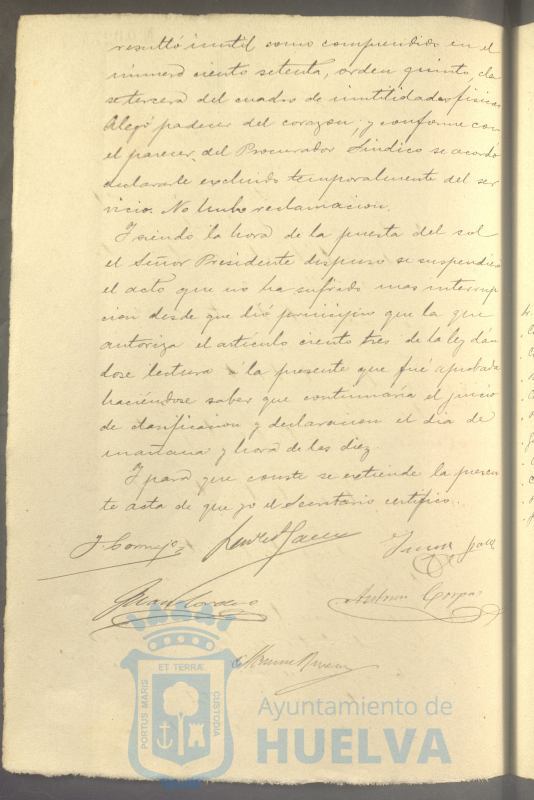 resultó inutil como comprendido en el
número ciento setenta, orden quinto, cla
se tercera del cuadro de inutilidades físicas
Alegó padecer del corazon y conforme con
el parecer del Procurador Síndico se acordó
declararle excluido temporalmente del ser
vicio. No hubo reclamacion.
Y siendo la hora de la puesta del sol
el Señor Presidente dispuso se suspendiera
el acto que no ha sufrido mas interrup
cion desde que dió principio que la que
autoriza el artículo ciento tres de la ley dán
dose lectura á la presente que fué aprobada
haciéndose saber que continuaría el juicio
de clasificacion y declaracion el dia de
mañana y hora de las diez.
Y para que conste se extiende la presen
te acta de que yo el Secretario certifico.
J Cornejo
Juan Cordero
Antonio Corpas
ET TERRÆ
PORTUS MARIS
CUSTODIA
Ayuntamiento de
HUELVA